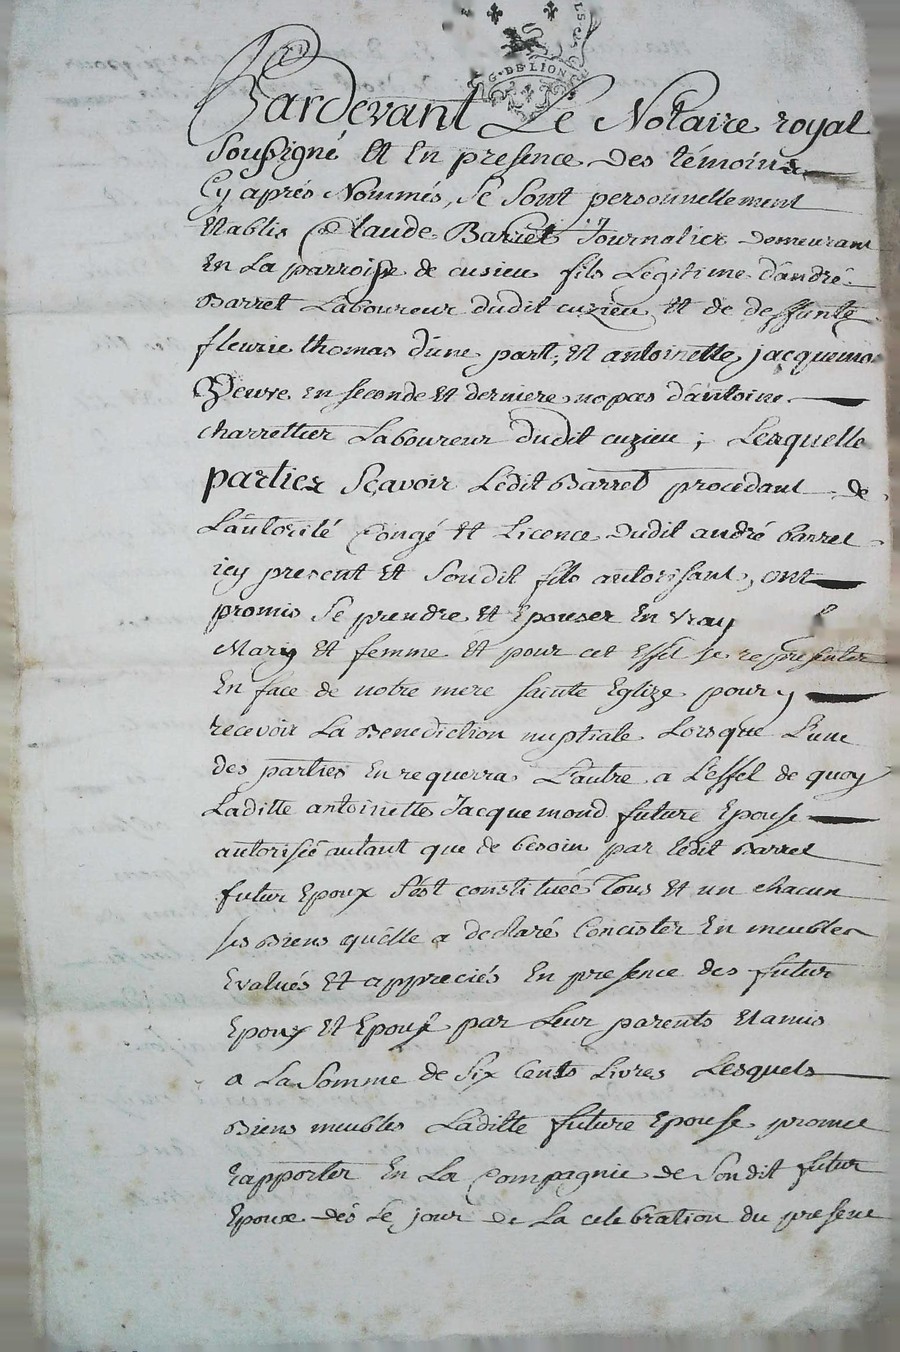 G·DE·LION
Pardevant Le Notaire royal
Soussigné Et En presence des témoins
Cy aprés Nommés, Se Sont personnellement
Etablis Claude Barret Journalier demeurant
En La parroisse de cusieu fils Legitime d'andré
Barret Laboureur dudit cuzieu Et de deffunte
fleurie thomas d'une part; Et antoinette jacquemo
Veuve en seconde Et derniere nopces d'antoine
charrettier Laboureur dudit cuzieu; Lesquelle
parties Sçavoir Ledit Barret procedant de
L'autorité Congé Et Licence dudit andré barret
icy present Et Sondit fils autorisant, ont
promis Se prendre Et Epouser En vray
Mary Et femme Et pour cet Effet se représenter
En face de notre mere sainte Eglize pour y
recevoir La Benediction nuptiale Lorsque L'une
des parties En requerra L'autre a L'effet de quoy
Laditte antoinette Jacquemond future Epouse
autorisée autant que de besoin par ledit Barret
futur Epoux S'est constituée Tous Et un chacun
ses Biens qu'elle a declaré Concister En meubles
Evalués Et appreciés En presence des futur
Epoux Et Epouse par Leur parents Et amis
a La Somme de Six Cents Livres Lesquels
Biens meubles Laditte future Epouse promet
rapporter En La Compagnie de Sondit futur
Epoux dés Le jour de La celebration du present